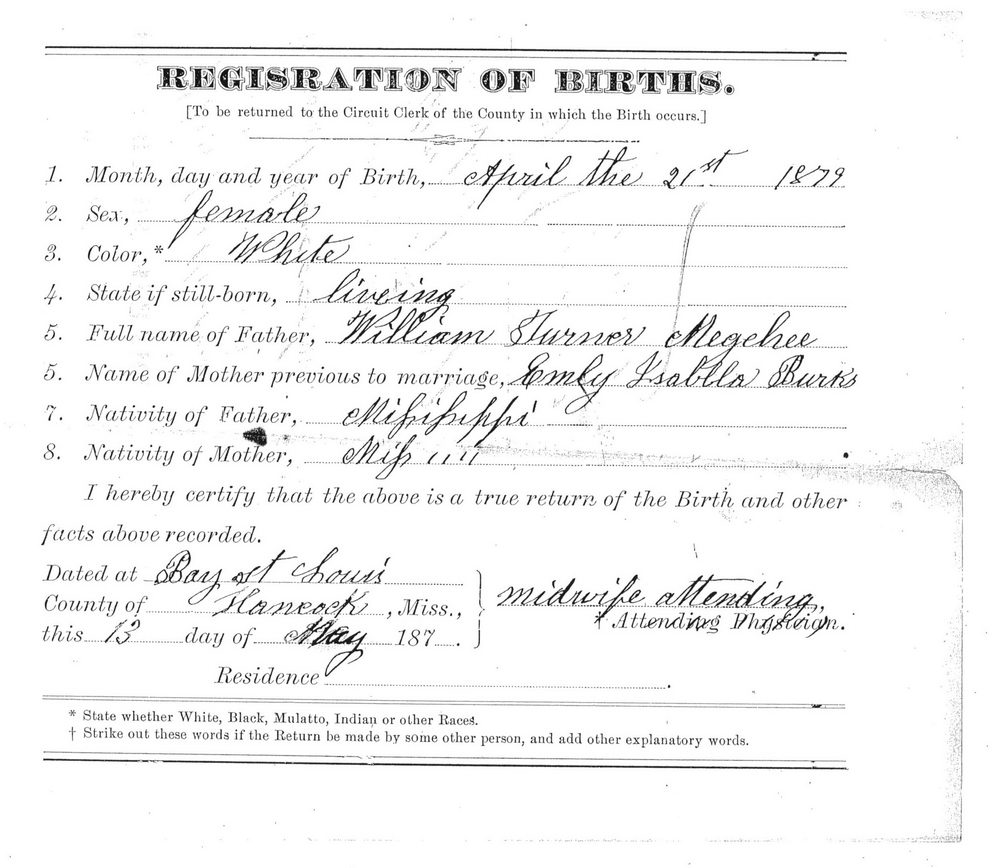 REGISRATION OF BIRTHS.
[To be returned to the Circuit Clerk of the County in which the Birth occurs.]
1. Month, day and year of Birth, April the 21st 1879
2. Sex, female
3. Color,* White
4. State if still-born, liveing
5. Full name of Father, William Turner Megehee
5. Name of Mother previous to marriage, Emly Isablla Burks
7. Nativity of Father, Missisippi
8. Nativity of Mother, Miss
I hereby certify that the above is a true return of the Birth and other
facts above recorded.
Dated at Bay st Louis
County of Hancock, Miss.,
this 13 day of May 187 .
midwife attending,
† Attending Physician.
Residence
* State whether White, Black, Mulatto, Indian or other Races.
† Strike out these words if the Return be made by some other person, and add other explanatory words.